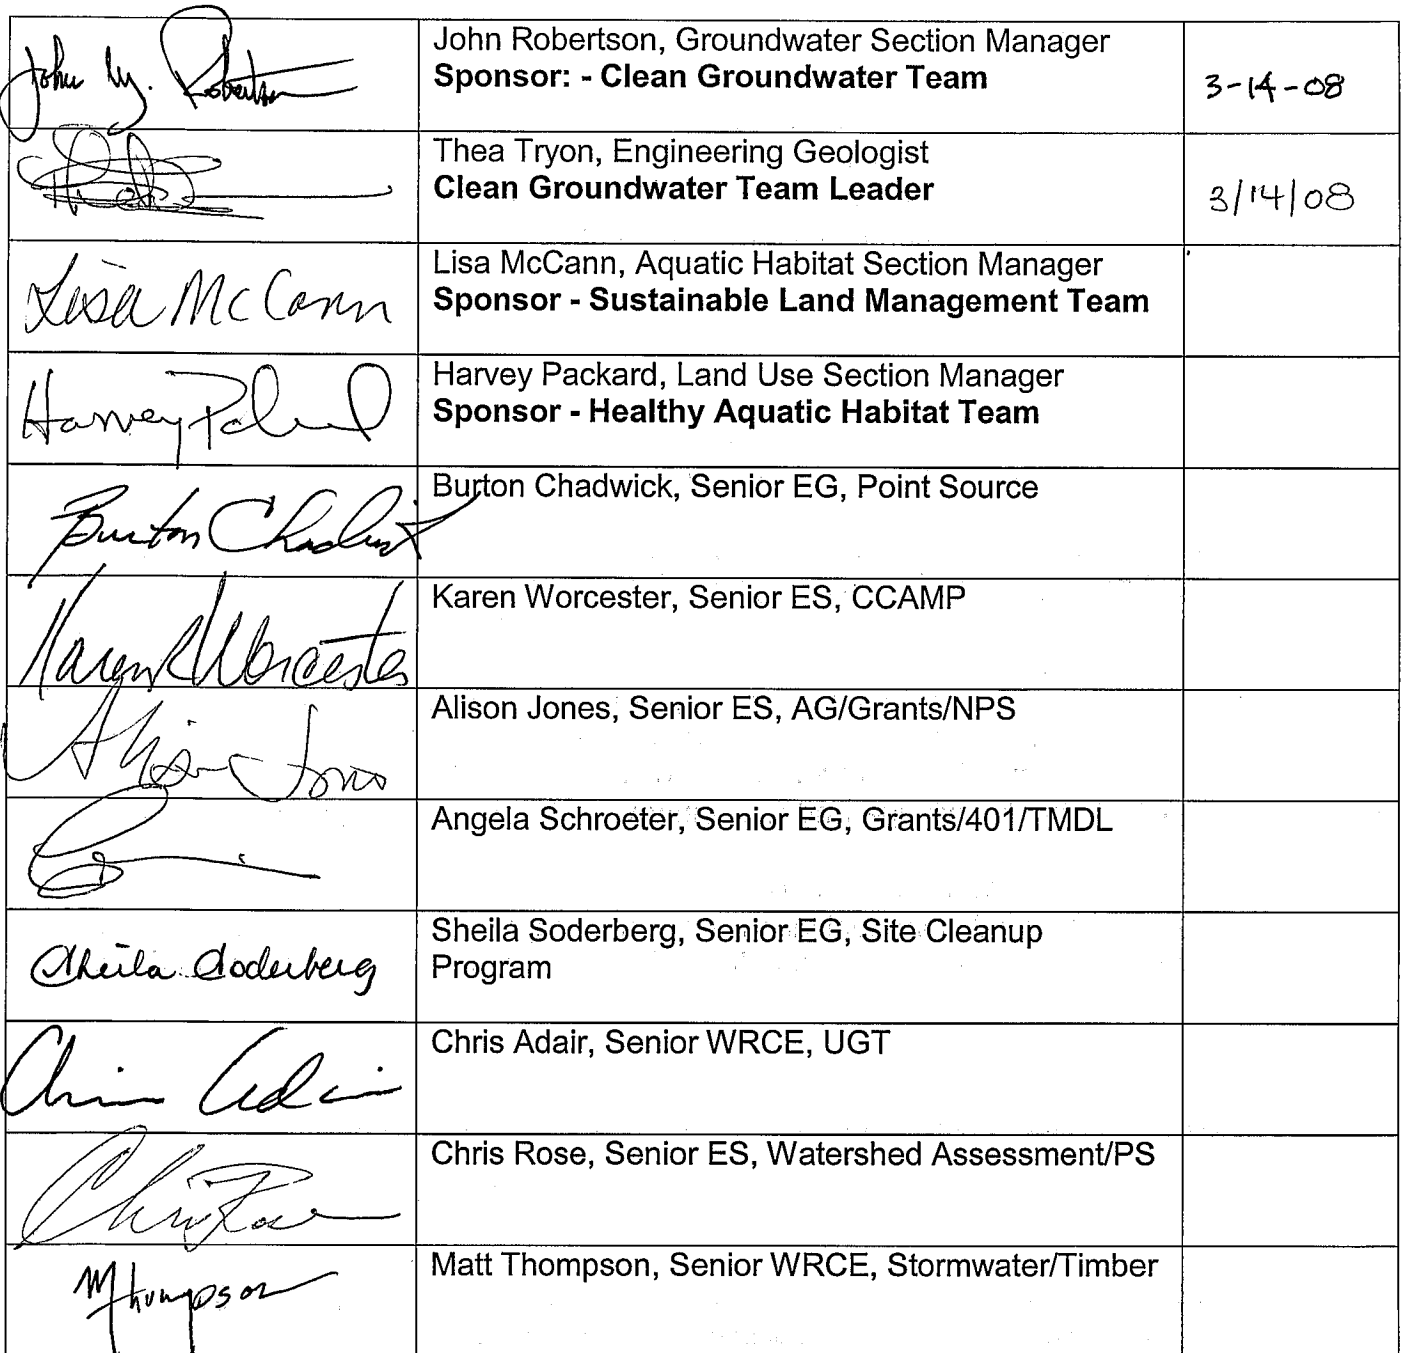 John M. Robertson
John Robertson, Groundwater Section Manager
Sponsor: - Clean Groundwater Team
3-14-08
Thea Tryon, Engineering Geologist
Clean Groundwater Team Leader
3/14/08
Lisa McCann
Lisa McCann, Aquatic Habitat Section Manager
Sponsor - Sustainable Land Management Team
Harvey Packard
Harvey Packard, Land Use Section Manager
Sponsor - Healthy Aquatic Habitat Team
Burton Chadwick
Burton Chadwick, Senior EG, Point Source
Karen R Worcester
Karen Worcester, Senior ES, CCAMP
Alison Jones
Alison Jones, Senior ES, AG/Grants/NPS
Angela Schroeter, Senior EG, Grants/401/TMDL
Sheila Soderberg
Sheila Soderberg, Senior EG, Site Cleanup
Program
Chris Adair
Chris Adair, Senior WRCE, UGT
Chris Rose
Chris Rose, Senior ES, Watershed Assessment/PS
MThompson
Matt Thompson, Senior WRCE, Stormwater/Timber